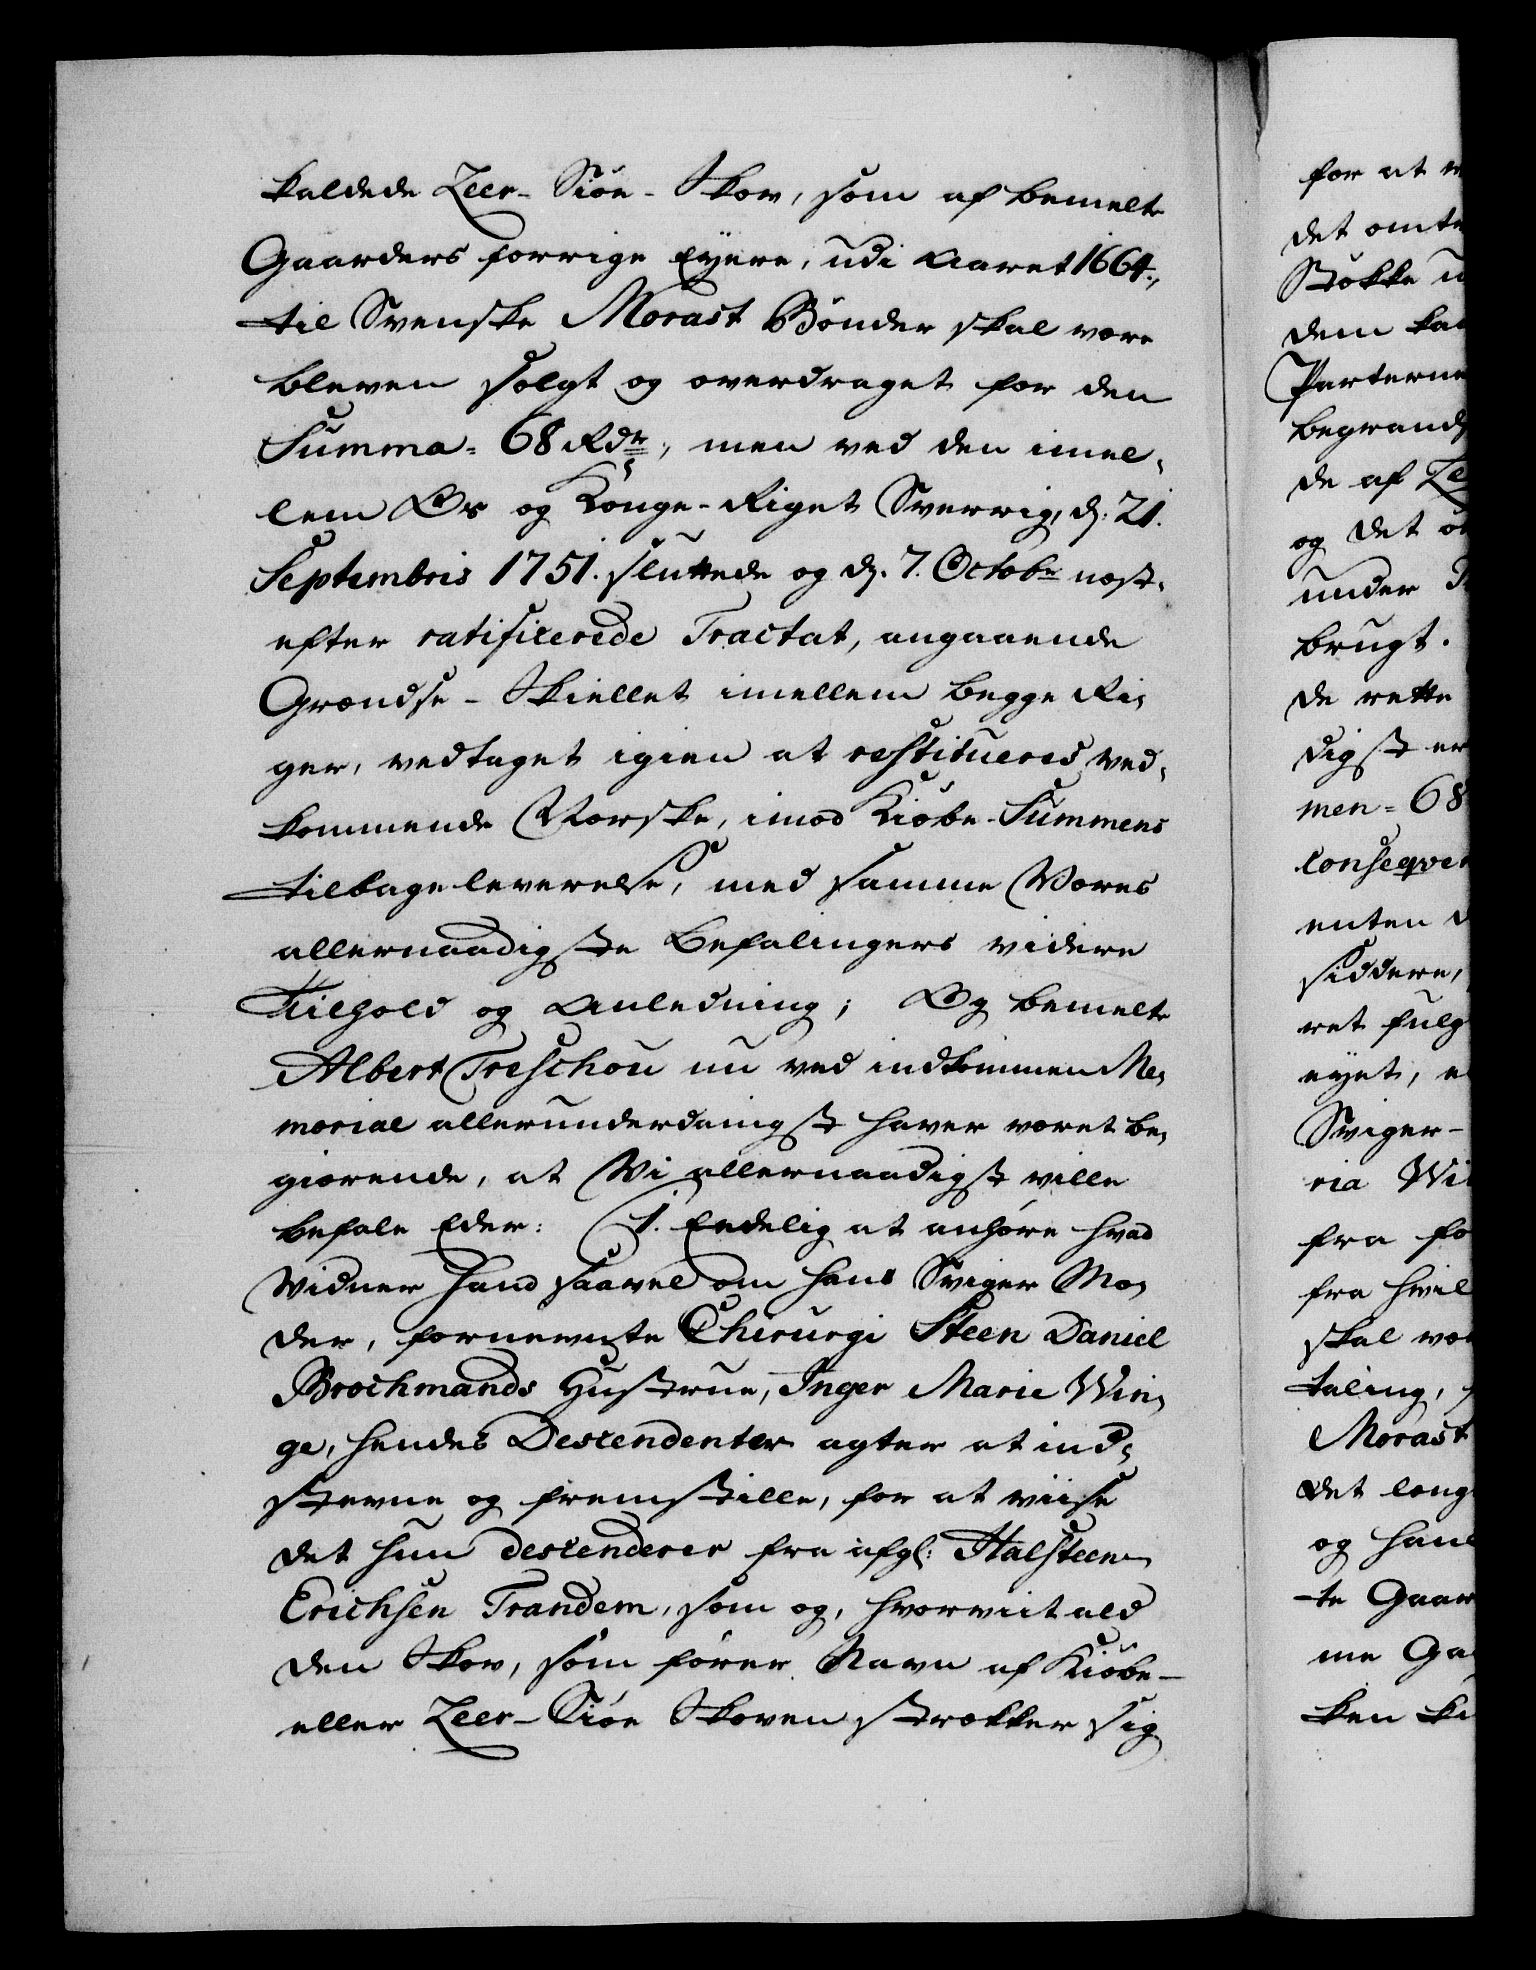 kaldede Leer-Siøe-Skov, som af bemelte
Gaarders forrige Eyere, udi Aaret 1664.,
til Svenske Morast Bønder skal være
bleven solgt og overdraget for den
Summa = 68 Rdr, men ved den imel,
lem Os og Konge-Riget Sverrig, d. 21.
Septembris 1751. sluttede og d. 7. Octobr næst,
efter ratificerede Tractat, angaaende
Grændse-Skiellet imellem begge Ri,
ger, vedtaget igien at restitueres ved,
kommende Norske, imod Kiøbe-Summens
tilbageleverelse, med samme Vores
allernaadigste Befalingers videre
Tilhold og Anledning; Og bemelte
Albert Treschou nu ved indkommen Me,
morial allerunderdanigst haver været be,
giærende, at Vi allernaadigst ville
befale Eder: 1. Endelig at anhøre hvad
Vidner hand saavel om hans Sviger Mo,
der, fornevnte Chirurgi Steen Daniel
Brochmands Hustrue, Inger Marie Win,
ge, hendes Descendenter agter at ind,
stevne og fremstille, for at viise
det hun descenderer fra afgl: Halsteen
Erichsen Trandem, som og, hvorviit ald
den Skov, som fører Navn af Kiøbe-
eller Leer-Siøe Skoven strækker sig
for at
det omt
Støkke
dem
Parterne
begrænds
de af
og det
under
brugt.
de rette
digst er
men = 68
conseqve
enten
siddere,
ret fulg
eyet,
Sviger-
ria Wi
fra fo
fra hvil
skal
taling,
Morast
det long
og han
te Gaar
me Ga
ken